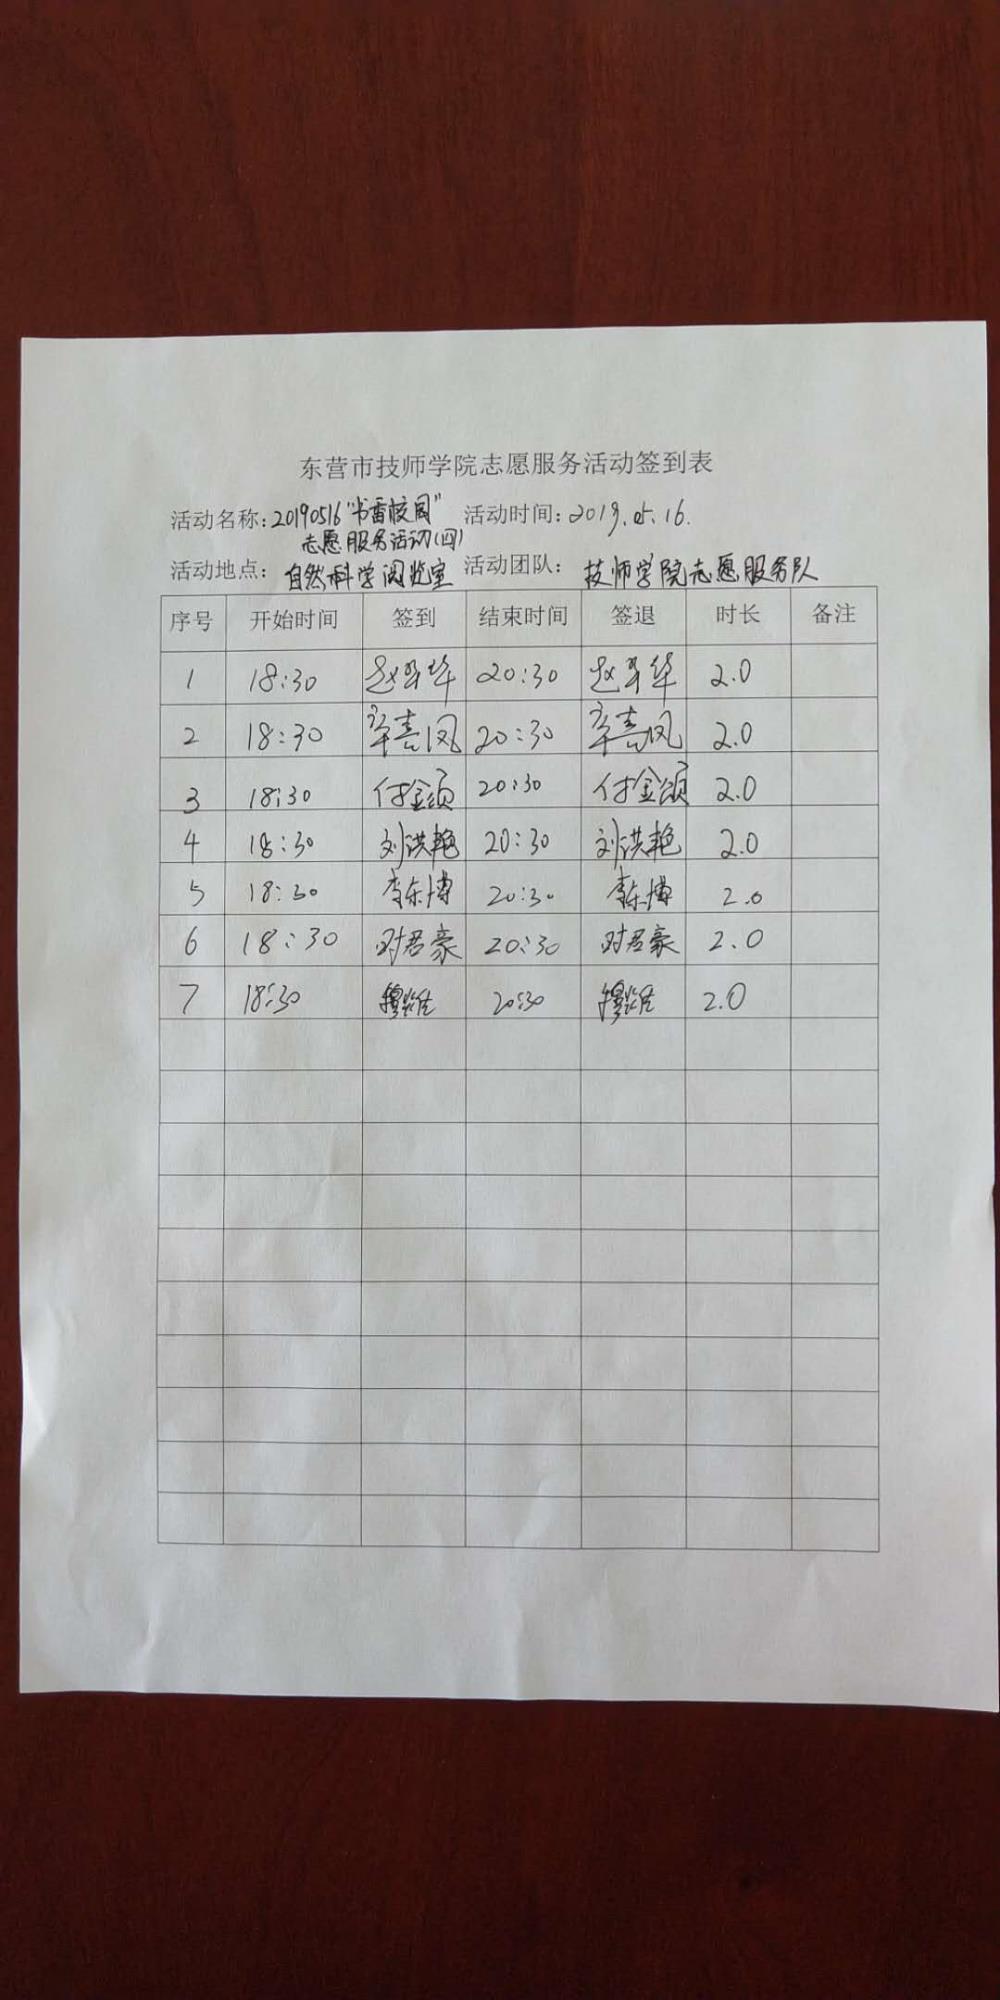 东营市技师学院志愿服务活动签到表
活动名称：20190516“书香校园” 活动时间：2019.05.16.
志愿服务活动(四)
活动地点： 自然科学阅览室 活动团队： 技师学院志愿服务队
序号 开始时间 签到 结束时间 签退 时长 备注
1 18:30 20:30 2.0
2 18:30 辛喜凤 20:30 辛喜凤 2.0
3 18:30 付金颂 20:30 付金颂 2.0
4 18:30 刘洪艳 20:30 刘洪艳 2.0
5 18:30 李东博 20:30 李东博 2.0
6 18:30 时君豪 20:30 时君豪 2.0
7 18:30 20:30 2.0